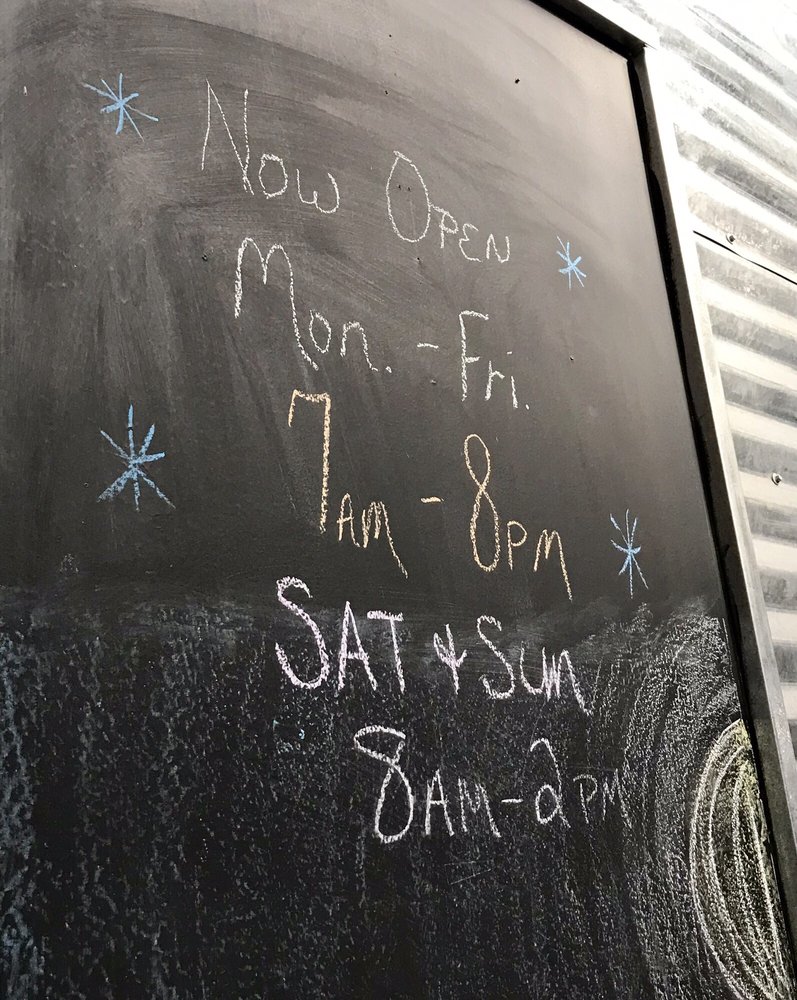 Now Open
Mon. - Fri.
7am - 8pm
SAT & Sun
8AM - 2PM